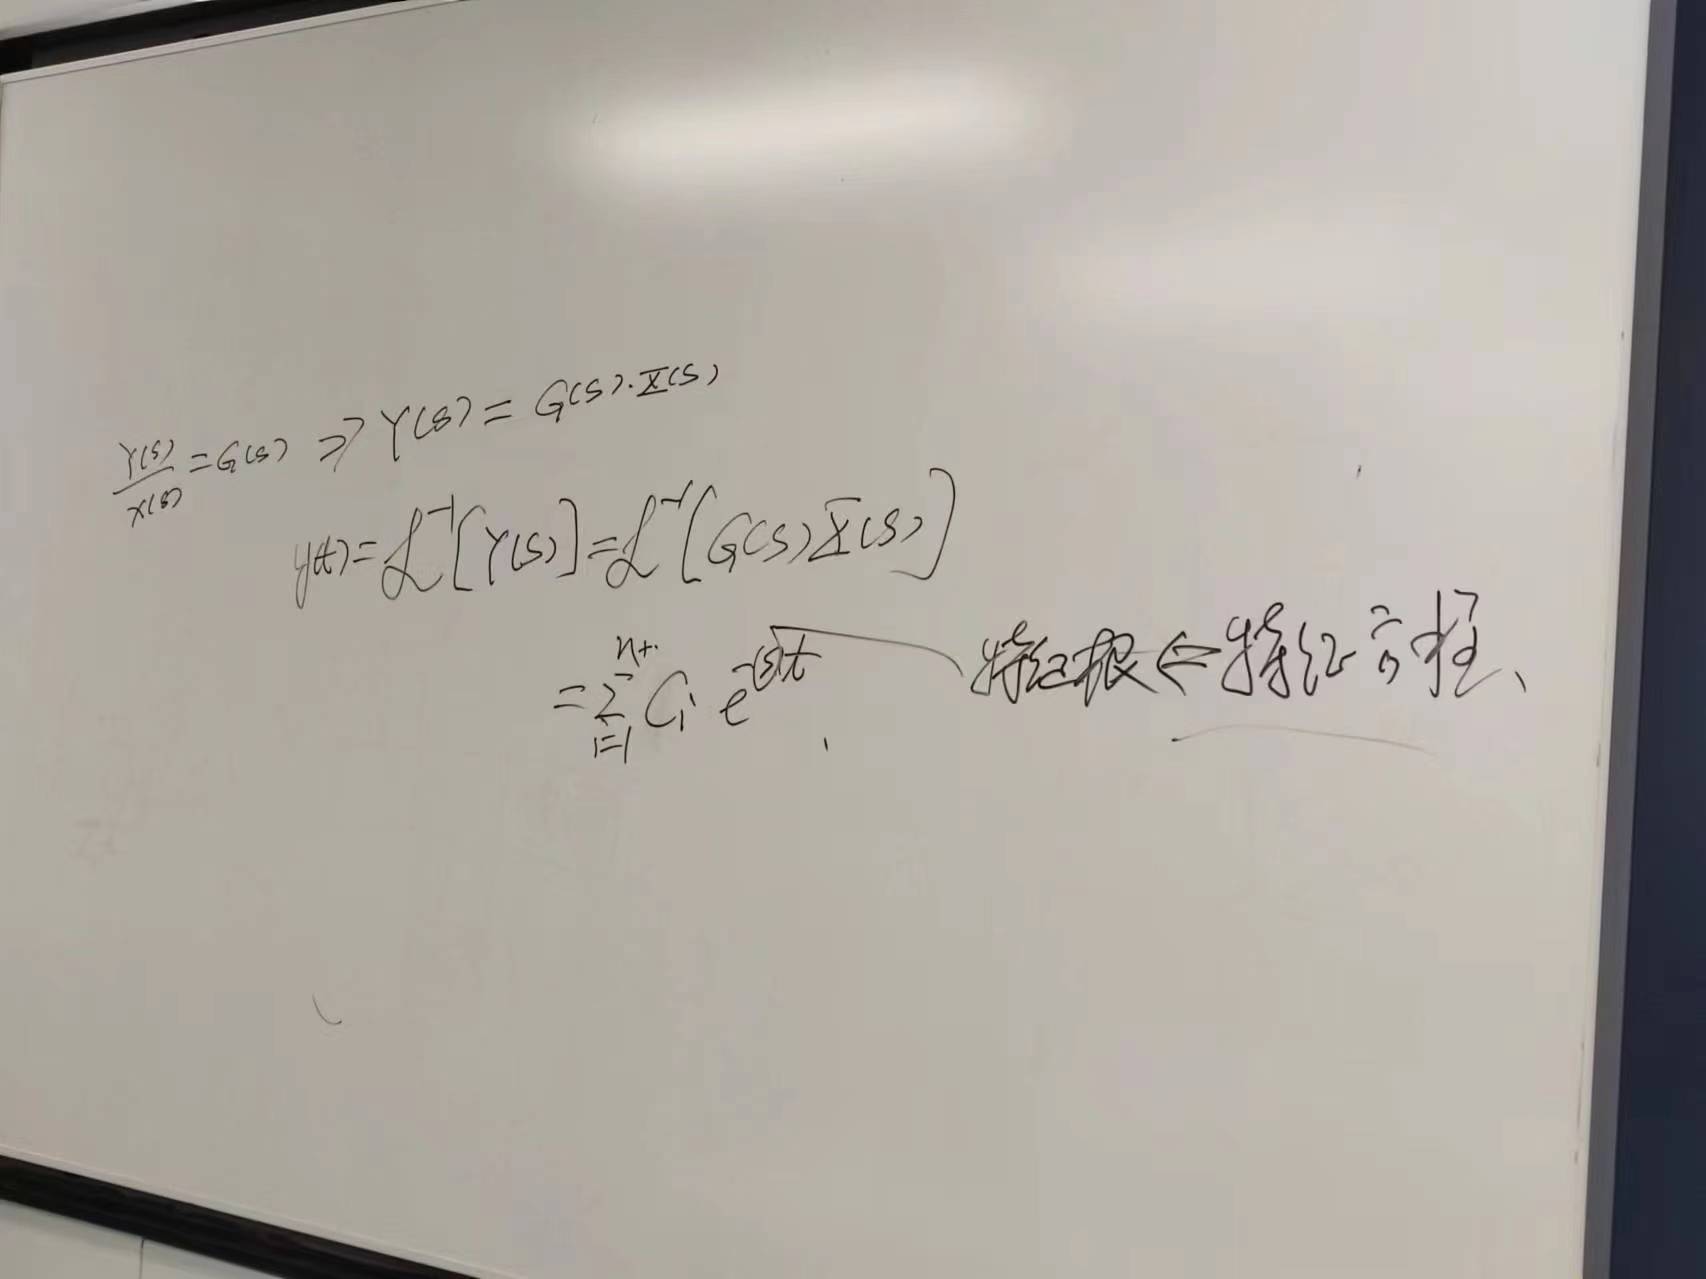 Y(s)/X(s) = G(s) ⇒ Y(s) = G(s)·X(s)
y(t) = ℒ⁻¹[Y(s)] = ℒ⁻¹[G(s)X(s)]
= Σ i=1 n+. Cᵢ e^-(s)t 特征根 ⇐ 特征方程、